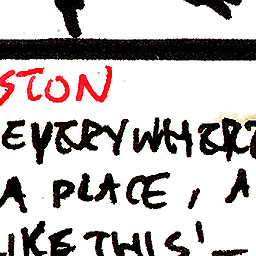 STON
EVERYWHERE
A PLACE, A
LIKE THIS'_